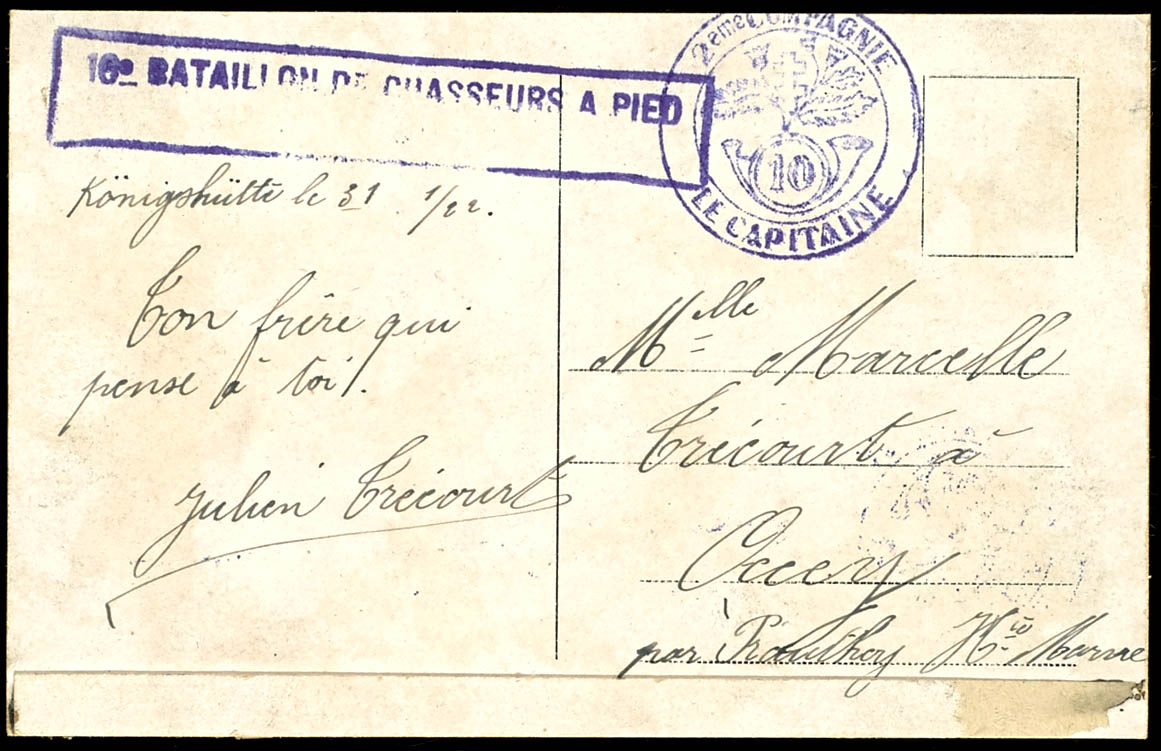 10e BATAILLON DE CHASSEURS A PIED
2eme COMPAGNIE
10
LE CAPITAINE
Königshütte le 31 1/22.
Ton frère qui
pense à toi.
Julien Trécourt
Melle Marcelle
Trécourt à
Occey
par Prauthoy Hte Marne